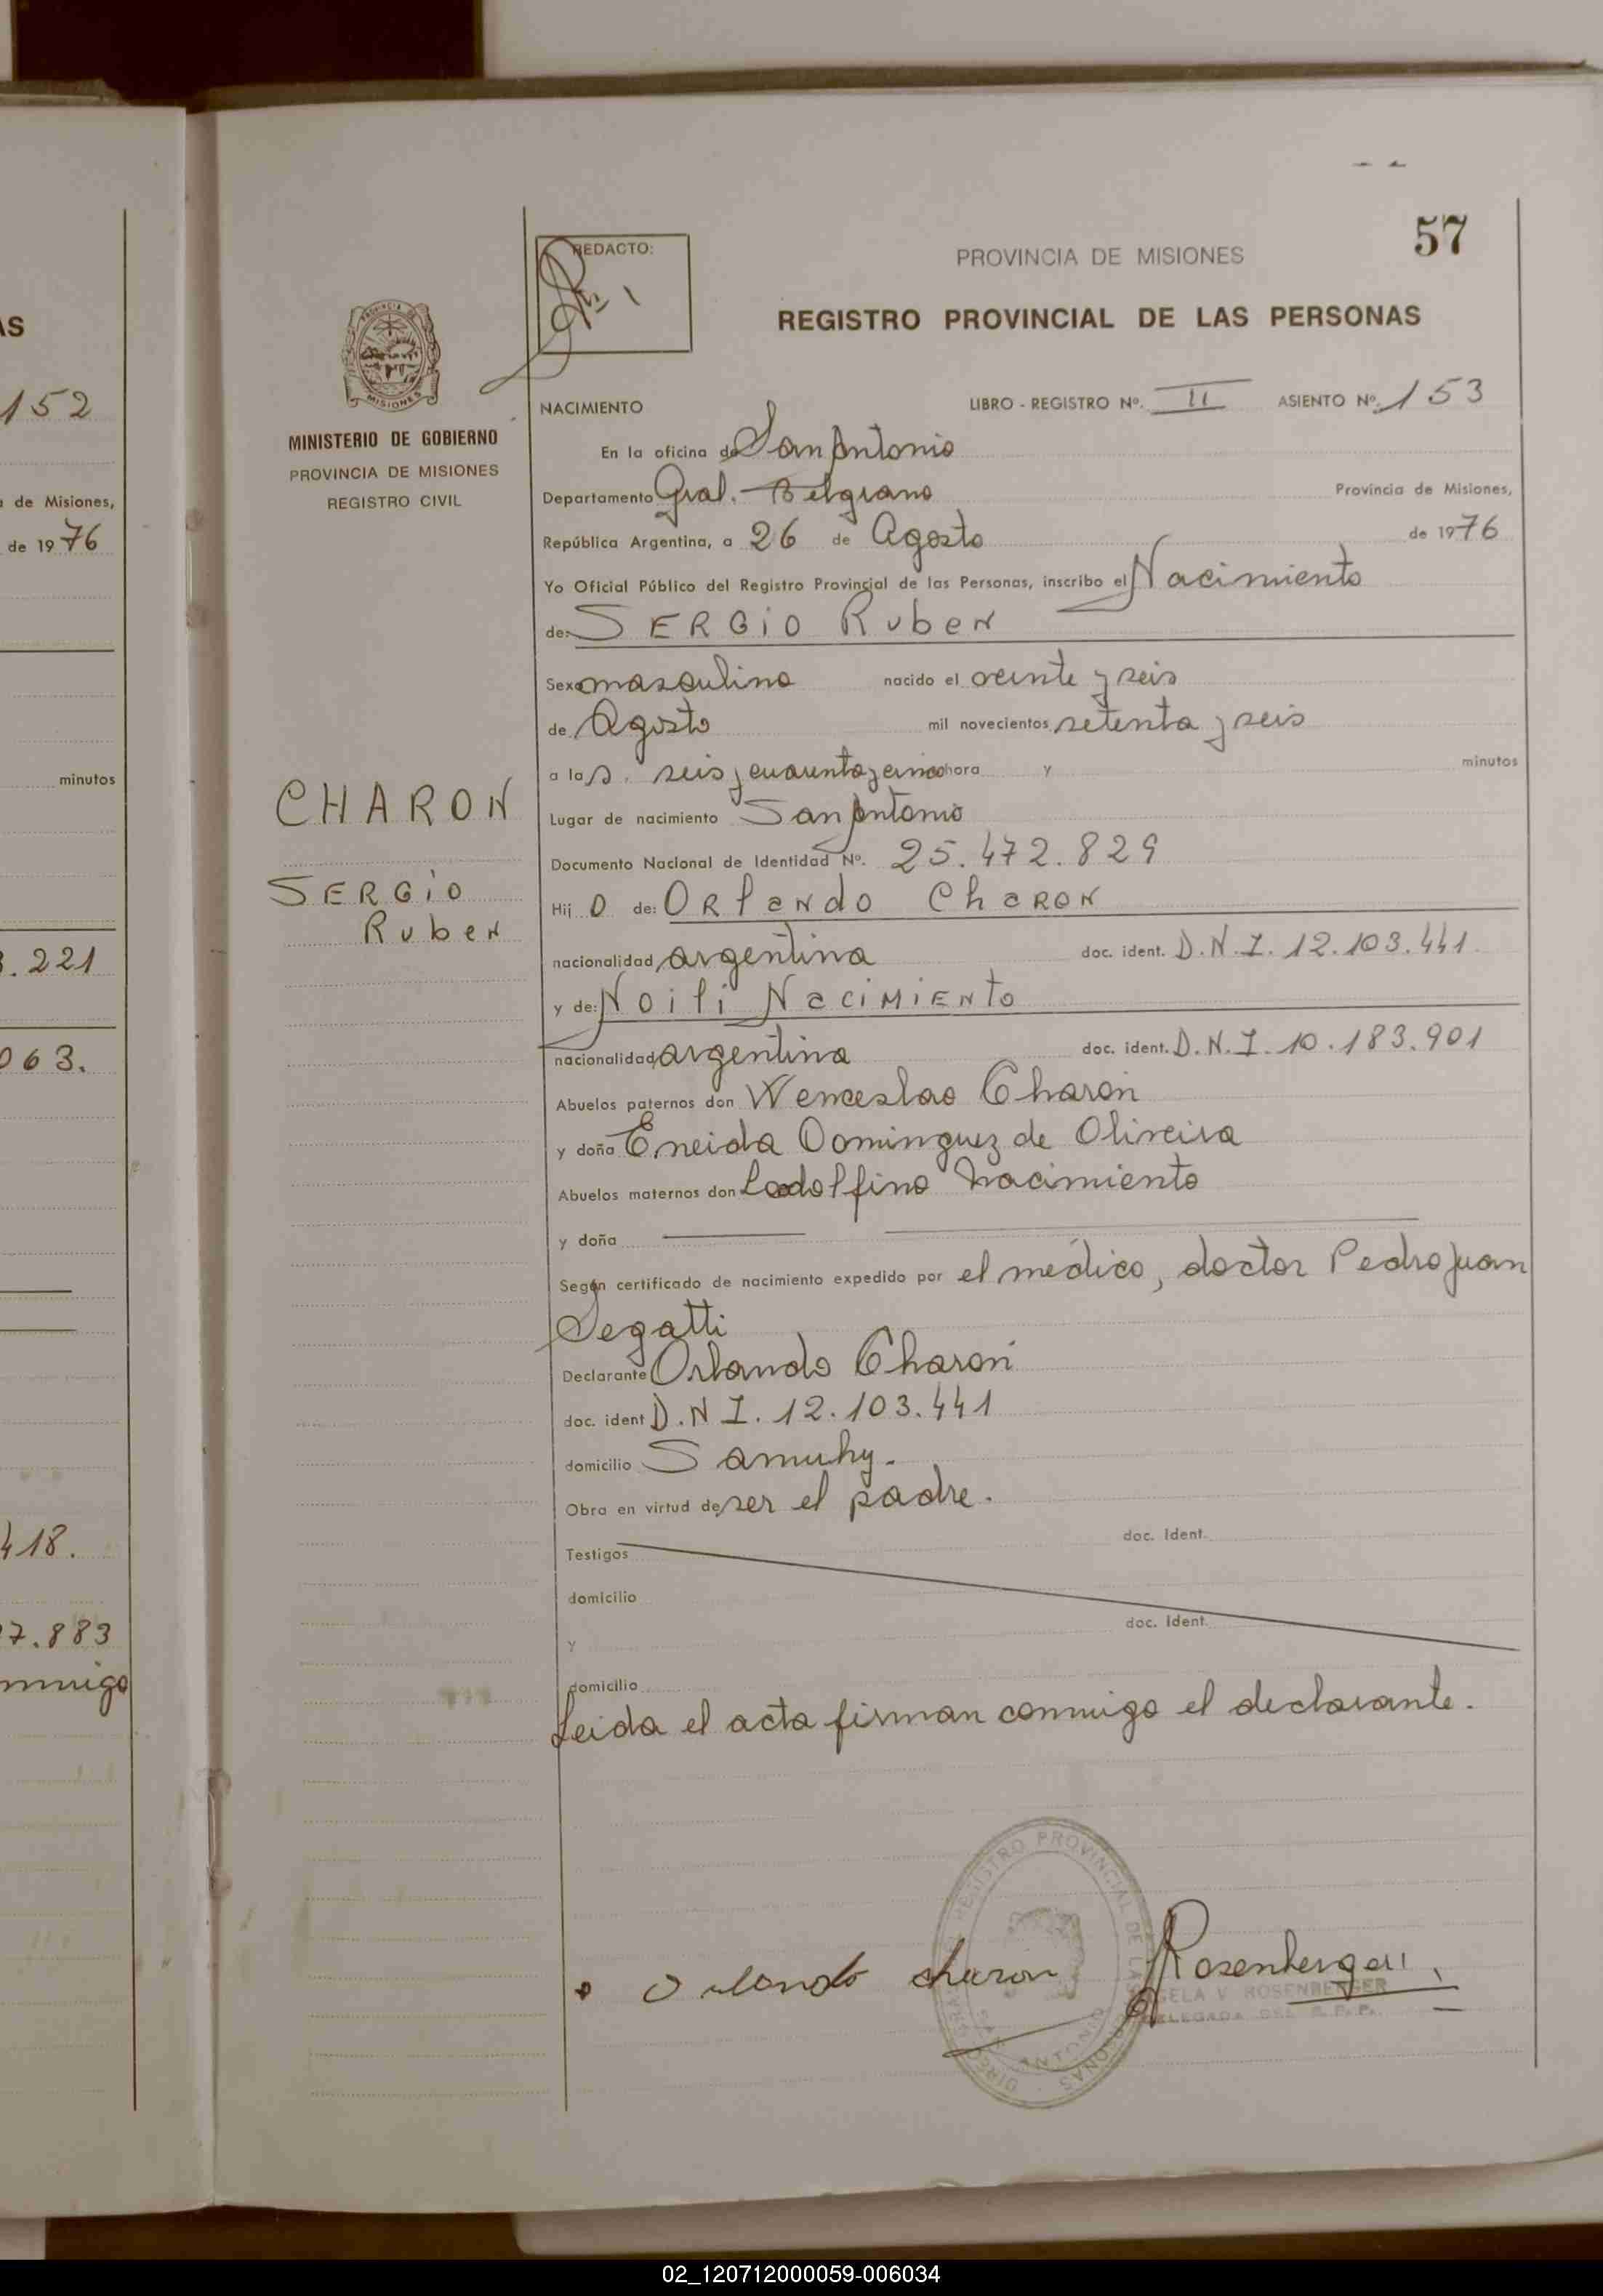 AS
152
a de Misiones,
de 1976
minutos
3.221
063.
418.
7.883
57
REDACTO:
PROVINCIA DE MISIONES
REGISTRO PROVINCIAL DE LAS PERSONAS
PROVINCIA DE
MISIONES
MINISTERIO DE GOBIERNO
PROVINCIA DE MISIONES
REGISTRO CIVIL
CHARON
SERGIO
Ruben
NACIMIENTO LIBRO - REGISTRO Nº. II ASIENTO Nº. 153
En la oficina de San Antonio
Departamento Gral. Belgrano Provincia de Misiones,
República Argentina, a 26 de Agosto de 1976
Yo Oficial Público del Registro Provincial de las Personas, inscribo el Nacimiento
de: SERGIO Ruben
Sexo masculino nacido el veinte y seis
de Agosto mil novecientos setenta y seis
a las. seis y cuarenta y cinco hora y minutos
Lugar de nacimiento San Antonio
Documento Nacional de Identidad Nº. 25.472.829
Hij o de: Orlando Charon
nacionalidad argentina doc. ident. D.N.I. 12.103.441.
y de: Noili Nacimiento
nacionalidad argentina doc. ident. D.N.I. 10.183.901
Abuelos paternos don Wenceslao Charon
y doña Eneida Dominguez de Oliveira
Abuelos maternos don Nacimiento
y doña
Según certificado de nacimiento expedido por el médico, doctor Pedro Juan
Segatti
Declarante Orlando Charon
doc. ident D.N I. 12.103.441
domicilio Samuhy.
Obra en virtud de ser el padre.
doc. Ident.
Testigos
domicilio
doc. Ident.
y
domicilio
Leida el acta firman conmigo el declarante.
Orlando charon Rosenberger
REGISTRO PROVINCIAL DE LAS PERSONAS
SAN ANTONIO
GELA V ROSENBERGER
DELEGADA DEL R.P.P.
02_120712000059-006034